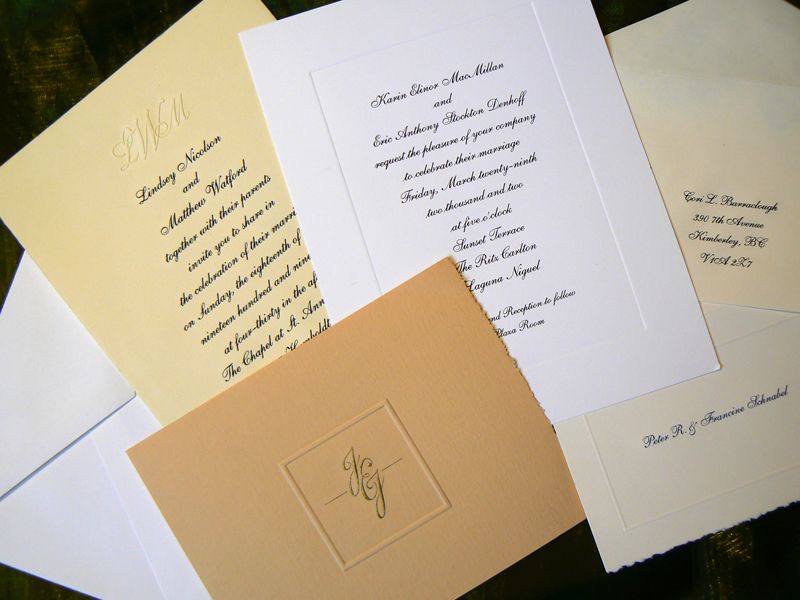 LWM
Lindsey Nicolson
and
Matthew Watford
together with their parents
invite you to share in
the celebration of their
on Sunday, the eighteenth of
nineteen hundred and
at four-thirty in the
The Chapel at St.
Karin Elinor MacMillan
and
Eric Anthony Stockton Denhoff
request the pleasure of your company
to celebrate their marriage
Friday, March twenty-ninth
two thousand and two
at five o'clock
Sunset Terrace
The Ritz Carlton
Laguna Niguel
Reception to follow
Plaza Room
Cori L. Barraclough
390 7th Avenue
Kimberley, BC
V1A 2Z7
Peter R. & Francine Schnabel